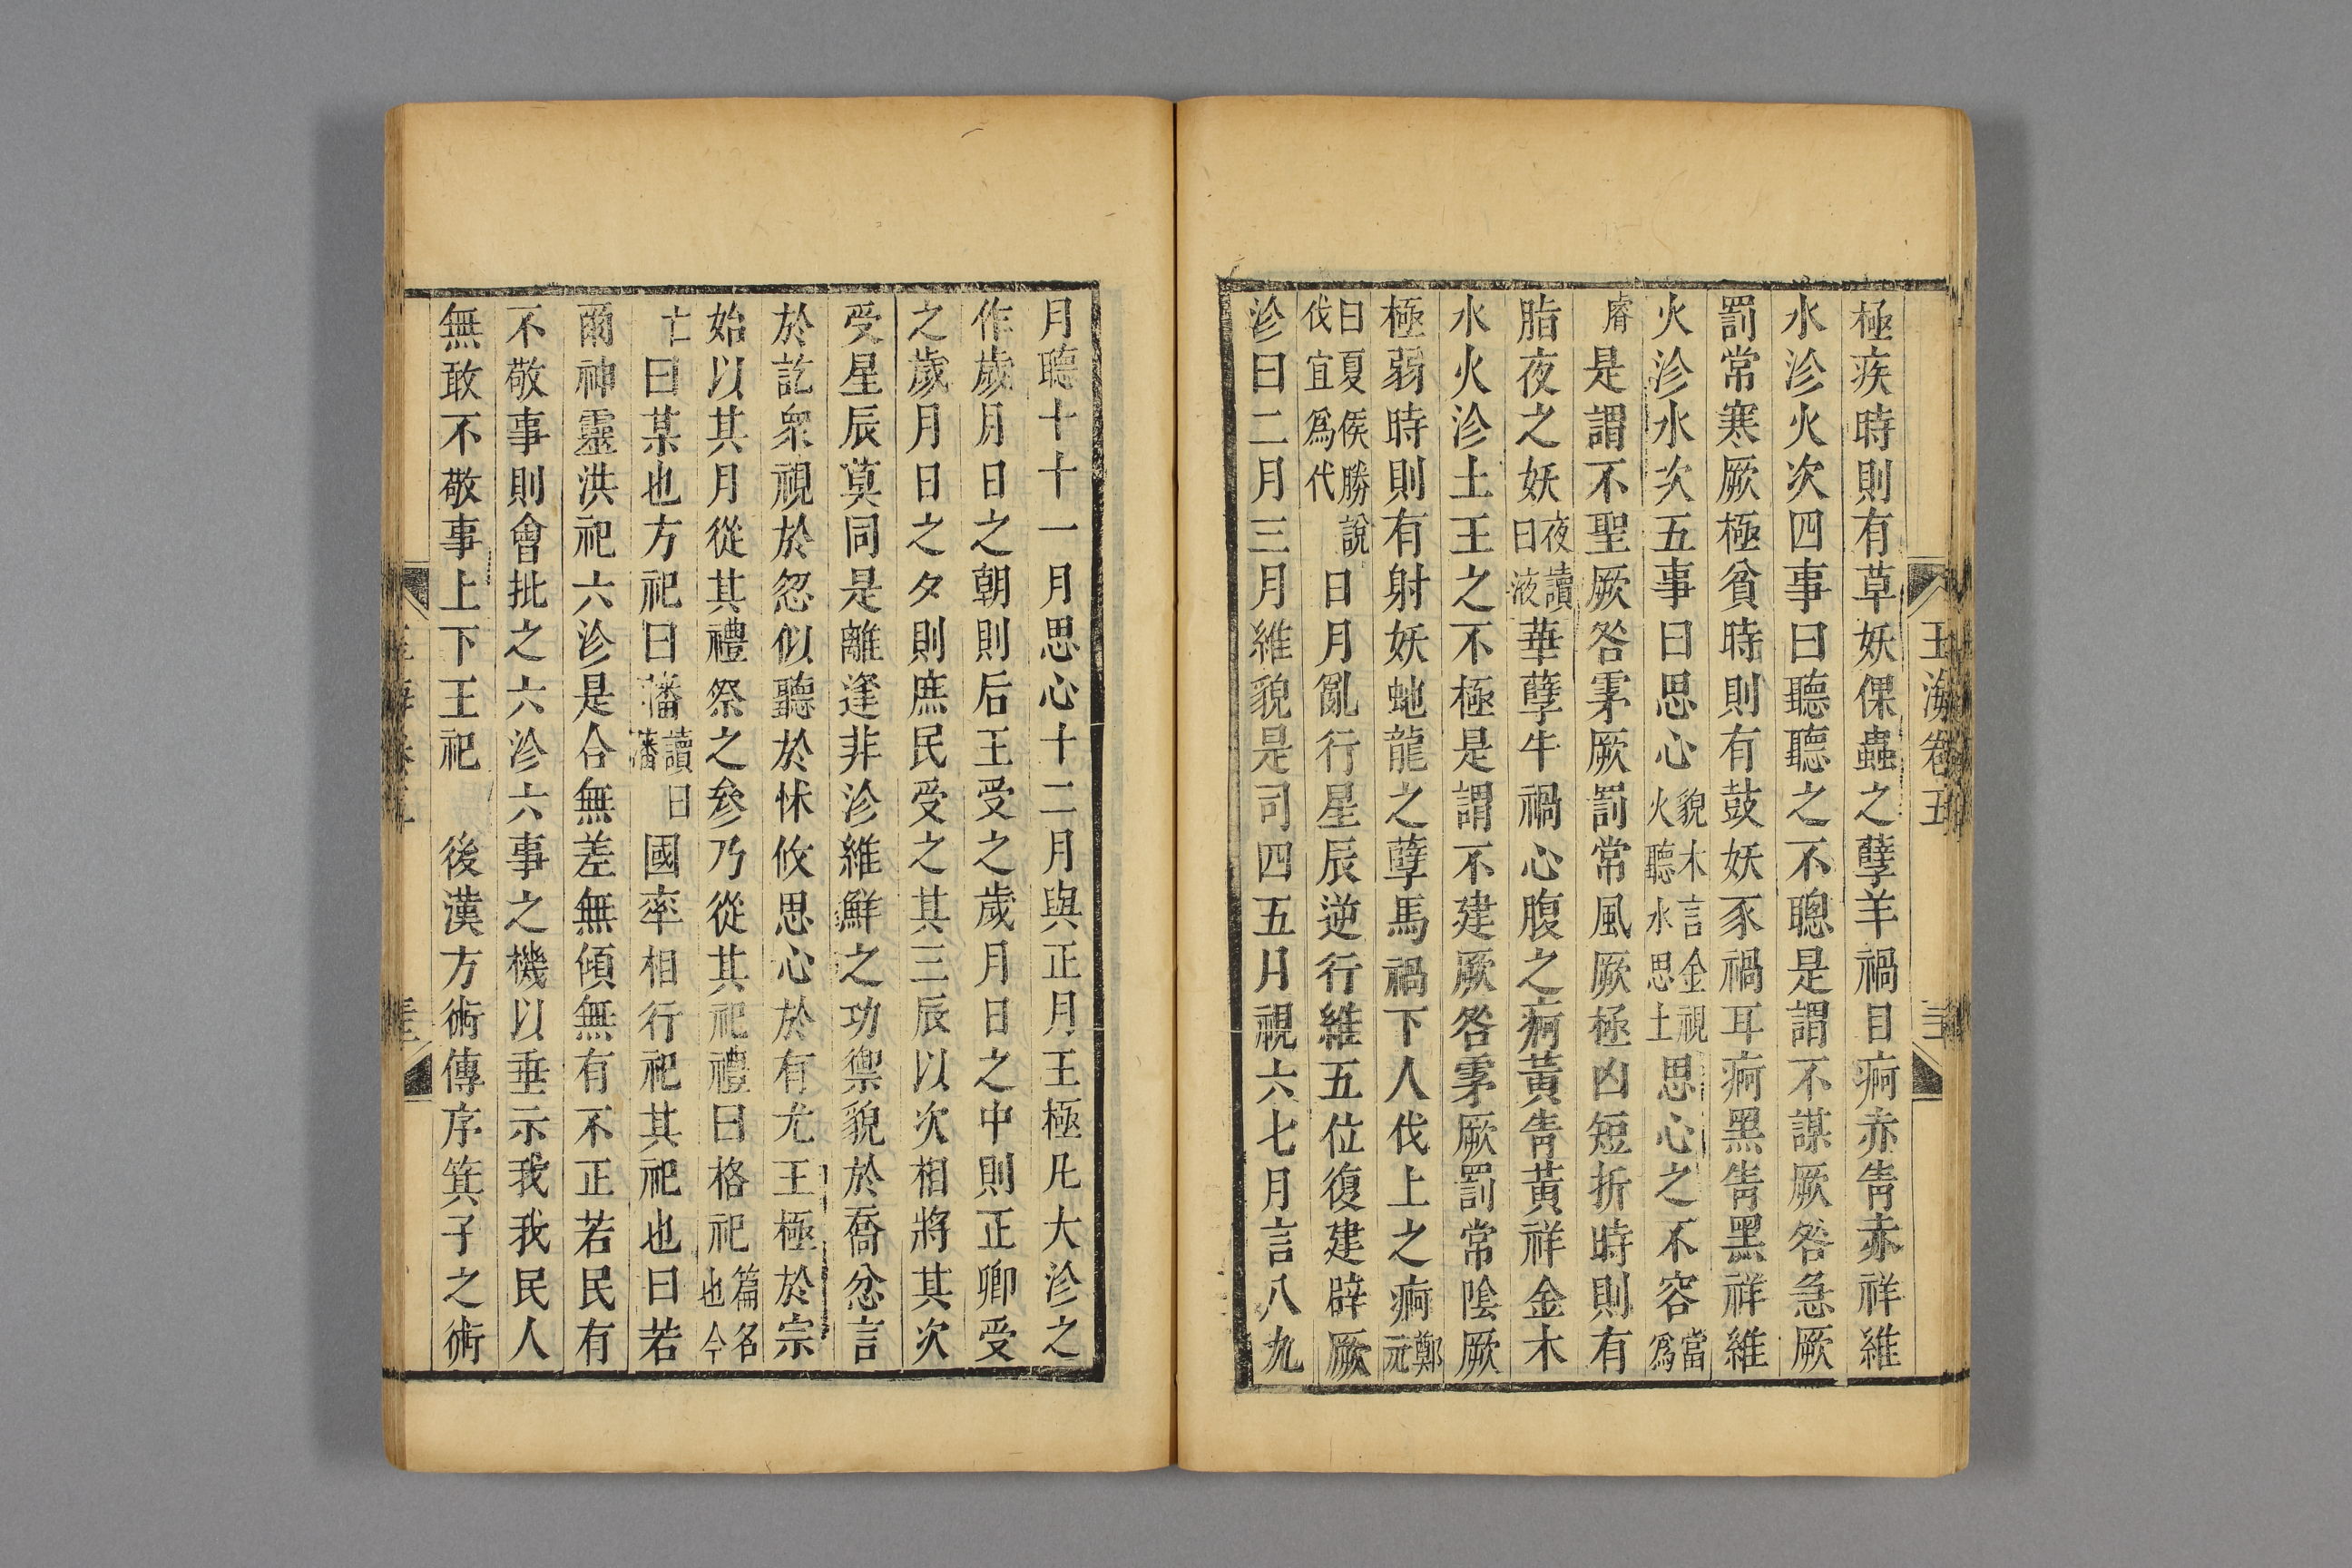 玉海卷五
極疾時則有草妖倮蟲之孽羊禍目痾赤眚赤祥維
水沴火次四事曰聽聽之不聰是謂不謀厥咎急厥
罰常寒厥極貧時則有鼓妖豕禍耳痾黑眚黑祥維
火沴水次五事曰思心貌木言金視火聽水思土思心之不容當爲
睿是謂不聖厥咎雺厥罰常風厥極凶短折時則有
脂夜之妖夜讀曰液華孽牛禍心腹之痾黃眚黃祥金木
水火沴土王之不極是謂不建厥咎雺厥罰常陰厥
極弱時則有射妖虵龍之孽馬禍下人伐上之痾鄭元
曰夏侯勝說伐宜爲代日月亂行星辰逆行維五位復建辟厥
沴曰二月三月維貌是司四五月視六七月言八九
月聽十十一月思心十二月與正月王極凡大沴之
作歲月日之朝則后王受之歲月日之中則正卿受
之歲月日之夕則庶民受之其三辰以次相將其次
受星辰莫同是離逢非沴維鮮之功禦貌於喬忿言
於訖衆視於忽似聽於怵攸思心於有尤王極於宗
始以其月從其禮祭之參乃從其祀禮曰格祀篇名也今
亡曰某也方祀曰播讀曰藩國率相行祀其祀也曰若
爾神靈洪祀六沴是合無差無傾無有不正若民有
不敬事則會批之六沴六事之機以垂示我我民人
無敢不敬事上下王祀　後漢方術傳序箕子之術